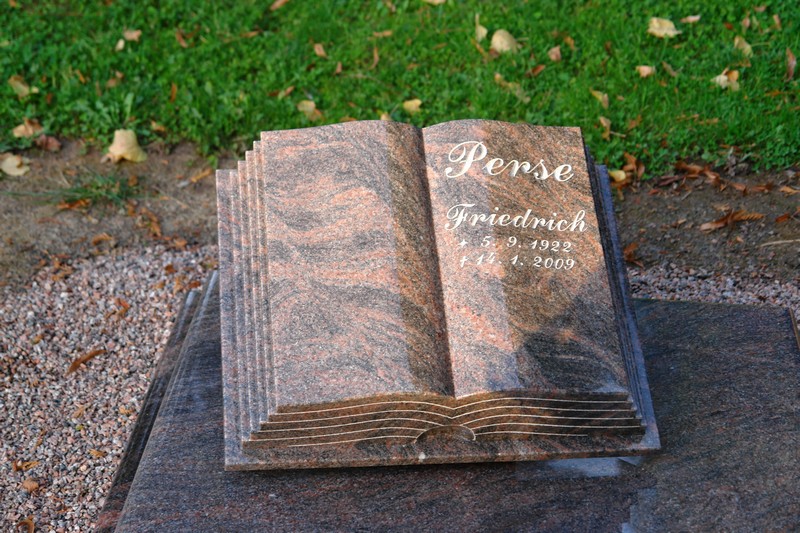 Perse
Friedrich
+ 5. 9. 1922
+ 14. 1. 2009